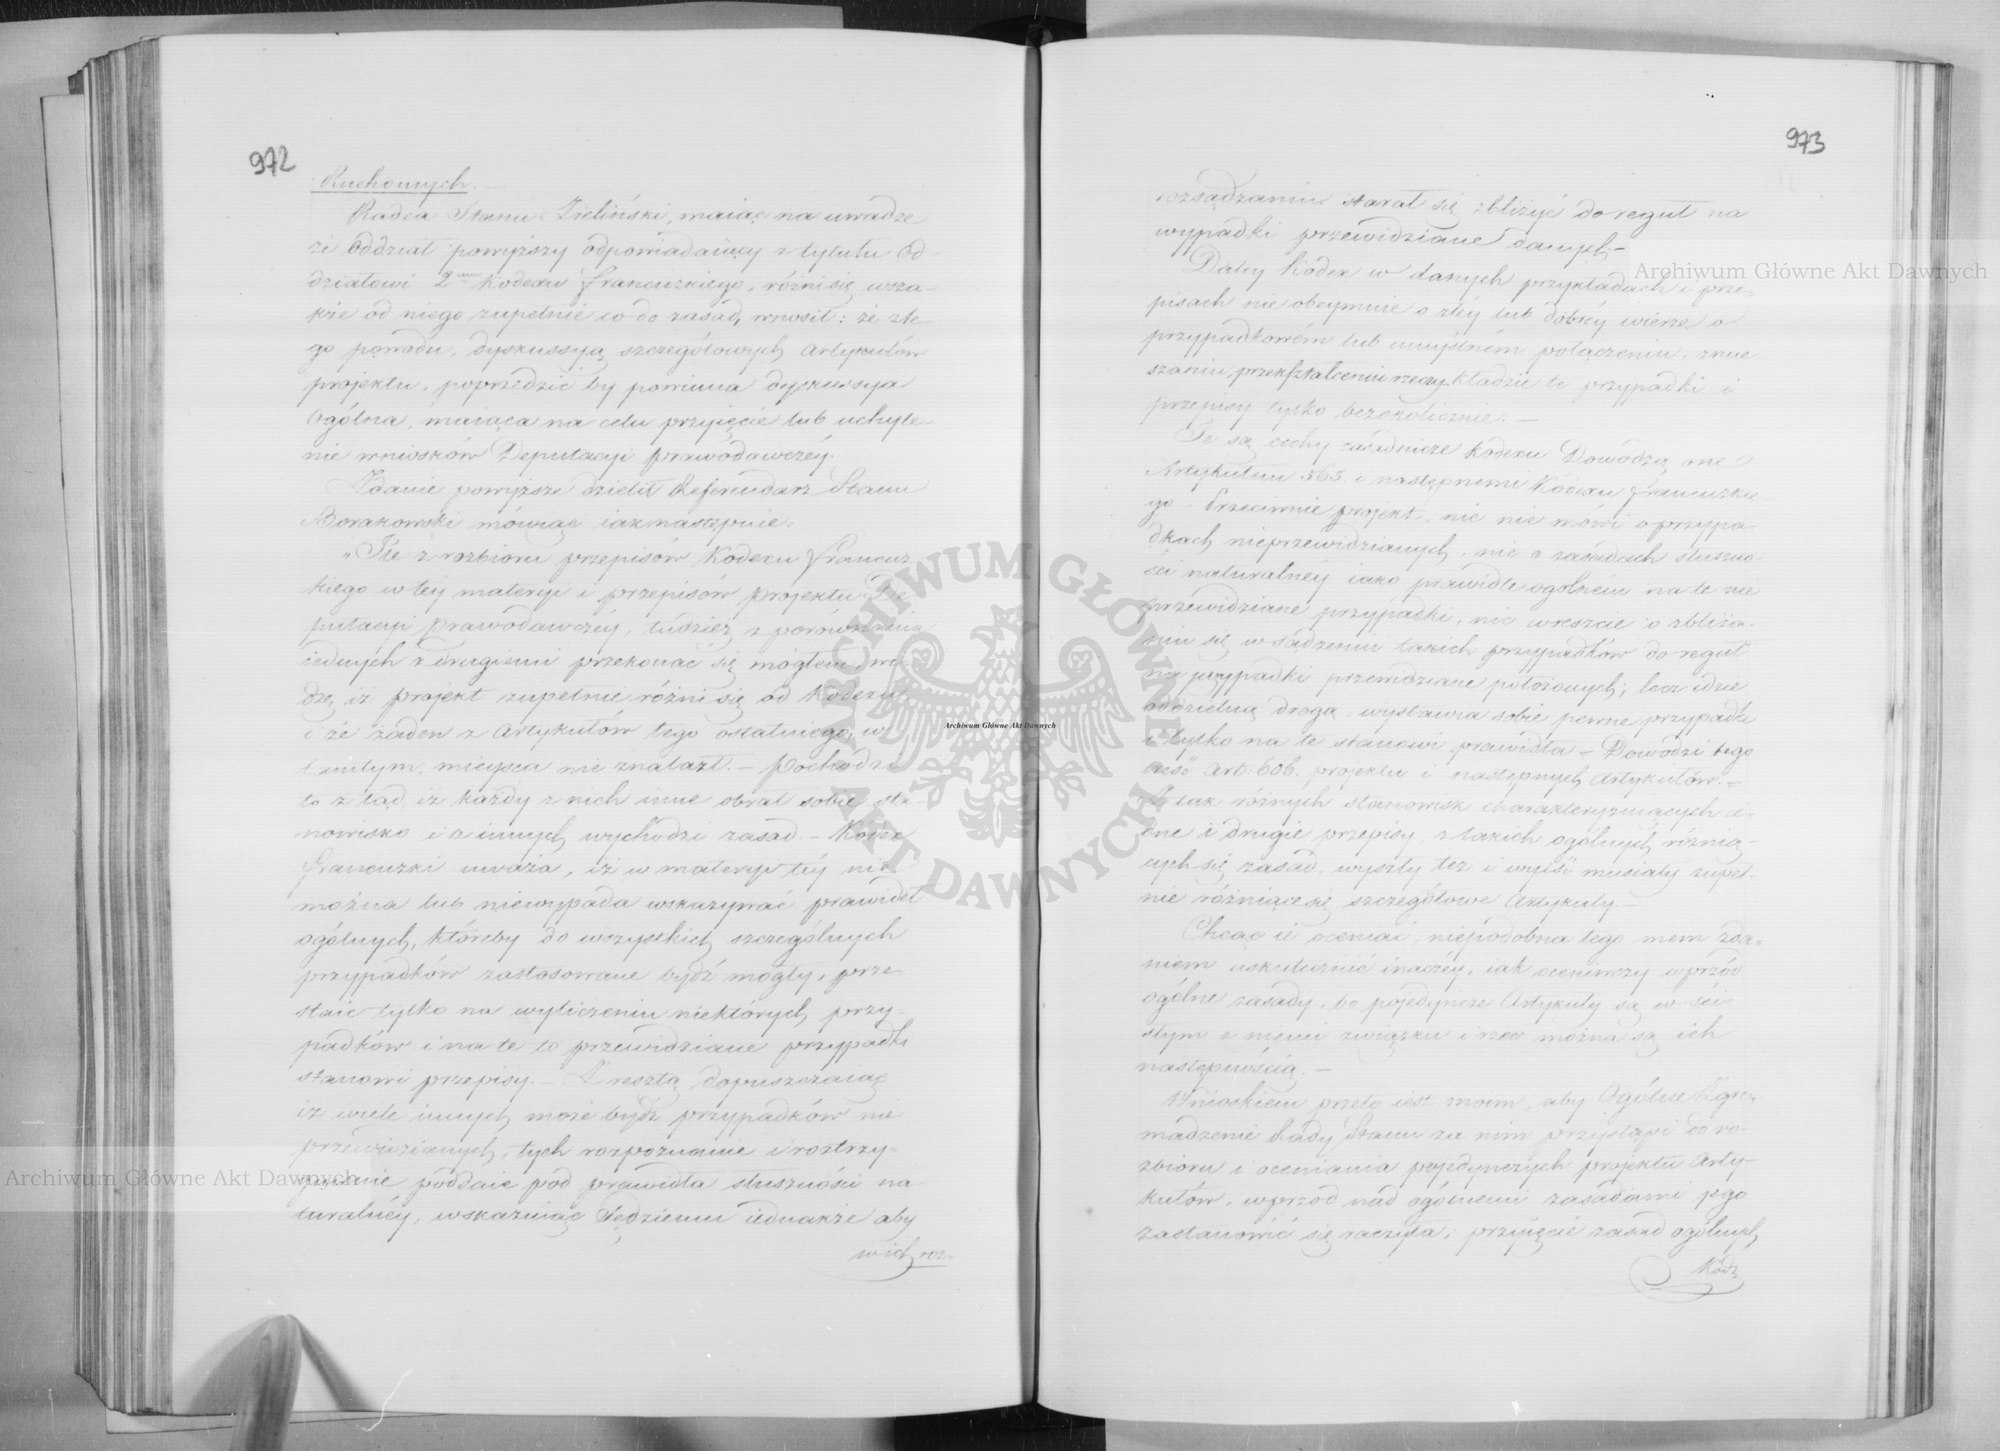 972
Ruchomych. —
Radca Stanu Zieliński, maiąc na uwadze
że Oddział powyższy odpowiadaiący z tytułu Od-
działowi 2mu Kodexu francuzkiego, różni się wsza-
kże od niego zupełnie co do zasad, wnosił: że z te-
go powodu, dyskussyą szczegółowych Artykułów
projektu, poprzedzić by powinna dyskussya
Ogólna, maiąca na celu przyięcie lub uchyle-
nie wniosków Deputacyi prawodawczéy.
Zdanie powyższe dzielił Referendarz Stanu
mówiąc iak następuie:
"Ile z rozbioru przepisów Kodexu francuz-
kiego w téy materyi i przepisów projektu De-
putacyi prawodawczéy, tudzież z porównania
iednych z drugiemi przekonać się mogłem, wi-
dzę, iż projekt zupełnie różni się od Kodexu
i że żaden z Artykułów tego ostatniego, w
tamtym, mieysca nie znalazł. — Pochodzi
to z tąd, iż każdy z nich inne obrał sobie sta-
nowisko i z innych wychodzi zasad. — Kodex
francuzki uważa, iż w materyi téy nie
można lub niewypada wskazywać prawideł
ogólnych, któreby do wszystkich szczególnych
przypadków zastosowane bydź mogły, prze-
staie tylko na wyliczeniu niektórych przy-
padków i na te to przewidziane przypadki
stanowi przepisy. — Z resztą dopuszczaiąc
iż wiele innych może bydź przypadków nie
przewidzianych, tych rozpoznanie i rostrzy-
gnienie poddaie pod prawidła słuszności na-
turalnéy, wskazuiąc Sędziemu iednakże aby
w ich roz-
973
rozsądzaniu starał się zbliżyć do reguł na
wypadki przewidziane danych. —
Daléy Kodex w danych przykładach i prze-
pisach nie obeymuie o złéy lub dobréy wierze o
przypadkowém lub umyślném połączeniu, zmie-
szaniu, przekształceniu rzeczy kładzie te przypadki i
przepisy tylko bezokolicznie. —
Te są cechy zasadnicze Kodexu Dowodzą one
Artykułem 565. i następnemi Kodexu francuzkie-
go — Przeciwnie projekt, nic nie mówi o przypa-
dkach nieprzewidzianych, nic o zasadach słuszno-
ści naturalnéy iako prawidle ogólnem na te nie
przewidziane przypadki, nic wreszcie o zbliża-
niu się w sądzeniu takich przypadków do reguł
na przypadki przewidziane położonych; lecz idzie
oddzielną drogą, wystawia sobie pewne przypadki
i tylko na te stanowi prawidła — Dowodzi tego
treść Art: 606. projektu i następnych Artykułów. —
Z tak różnych stanowisk charakteryzuiących ie-
dne i drugie przepisy, z takich ogólnych różnią-
cych się zasad, wyszły też i wyiść musiały zupeł-
nie różniące się szczegółowe Artykuły. —
Chcąc ie oceniać, niepodobna tego mem zda-
niem uskutecznić inaczéy, iak oceniwszy wprzód
ogólne zasady, bo pojedyńcze Artykuły są w ści-
słym z niemi związku i rzec można są ich
następnością. —
Wnioskiem przeto iest moim, aby Ogólne Zgro-
madzenie Rady Stanu za nim przystąpi do ro-
zbioru i oceniania pojedynczych projektu Arty-
kułów, wprzód nad ogólnemi zasadami jego
zastanowić się raczyło; przyięcie zasad ogólnych
Archiwum Główne Akt Dawnych
ARCHIWUM GŁÓWNE AKT DAWNYCH
Archiwum Główne Akt Dawnych
Archiwum Główne Akt Dawnych